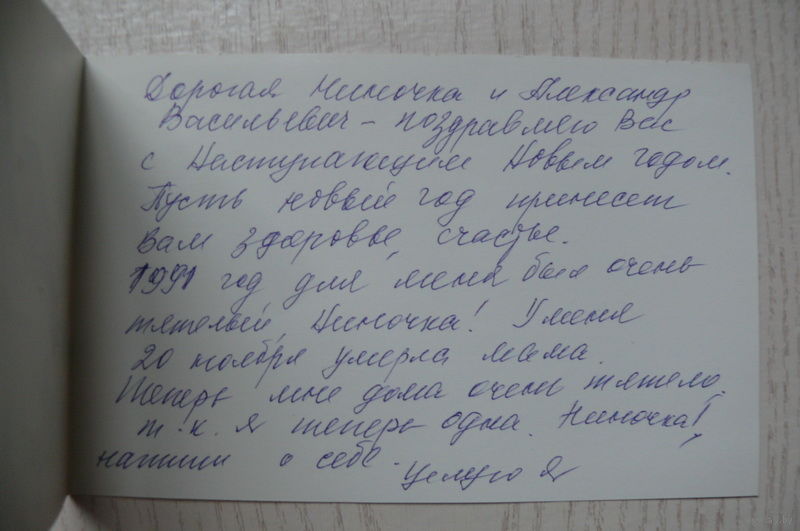 Дорогая Ниночка и Александр
Васильевич - поздравляю Вас
с Наступающим Новым годом.
Пусть новый год принесет
Вам здоровье, счастье.
1991 год для меня был очень
тяжелый, Ниночка! У меня
20 ноября умерла мама.
Теперь мне дома очень тяжело,
т.к. я теперь одна. Ниночка!
напиши о себе.
Целую Я